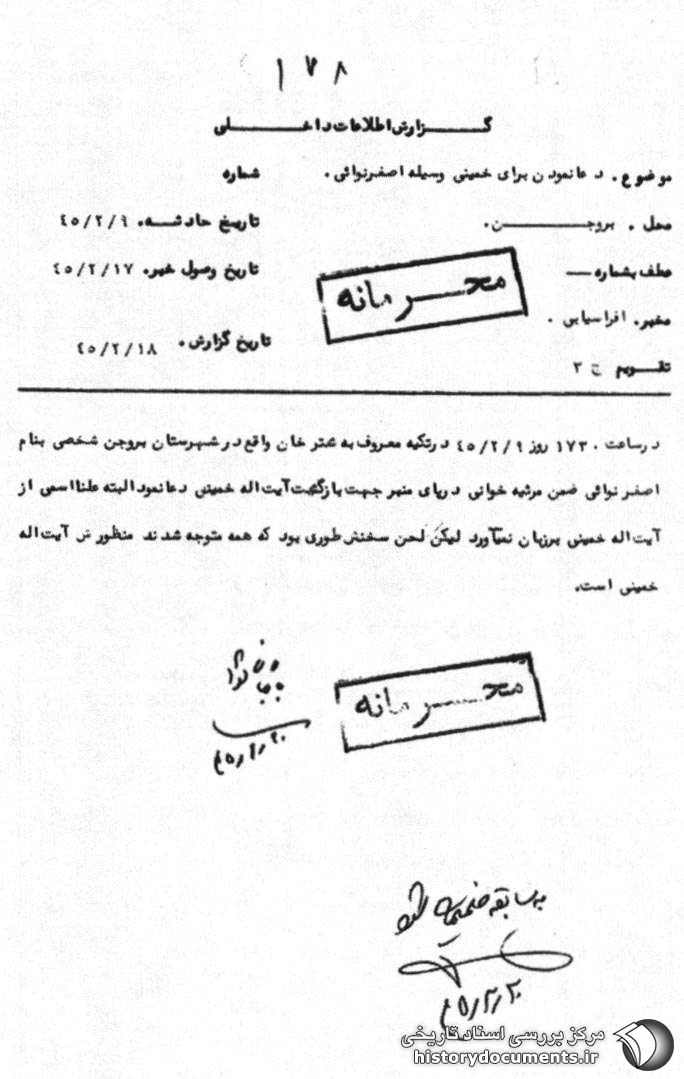 ۱۷۸
گزارش اطلاعات داخلی
موضوع. دعا نمودن برای خمینی وسیله اصغر نوائی.
شماره
محل. بروجن.
تاریخ حادثه. ۴۵/۲/۹
عطف بشماره —
تاریخ وصول خبر. ۴۵/۲/۱۷
محرمانه
مخبر. افراسیابی.
تاریخ گزارش. ۴۵/۲/۱۸
تقویم ج ۳
در ساعت ۱۷۳۰ روز ۴۵/۲/۹ در تکیه معروف به شتر خان واقع در شهرستان بروجن شخصی بنام
اصغر نوائی ضمن مرثیه خوانی در پای منبر جهت بازگشت آیت اله خمینی دعا نمود البته علنا اسمی از
آیت اله خمینی برزبان نمیآورد لیکن لحن سخنش طوری بود که همه متوجه شدند منظورش آیت اله
خمینی است.
محرمانه
به سابقه ضمیمه شود
مرکز بررسی اسناد تاریخی
historydocuments.ir